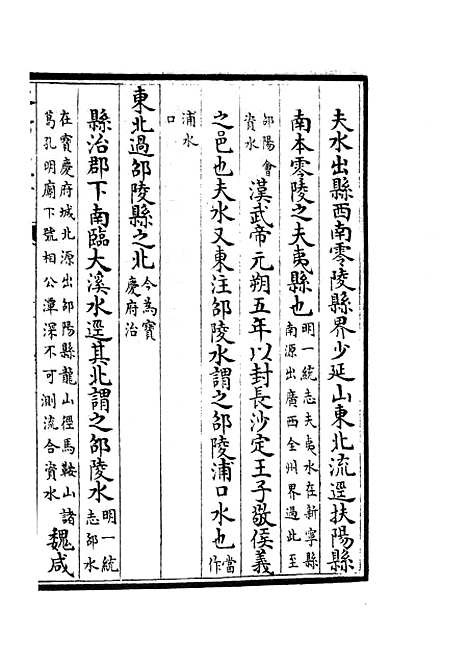 夫水出縣西南零陵縣界少延山東北流逕扶陽縣
南本零陵之夫夷縣也明一統志夫夷水在新寧縣南源出廣西全州界過此至
邵陽會資水漢武帝元朔五年以封長沙定王子敬侯義
之邑也夫水又東注邵陵水謂之邵陵浦口水也當作
浦水口
東北過邵陵縣之北今為寶慶府治
縣治郡下南臨大溪水逕其北謂之邵陵水明一統志邵水
在寶慶府城北源出邵陽縣龍山徑馬鞍山諸葛孔明廟下號相公潭深不可測流合資水魏咸